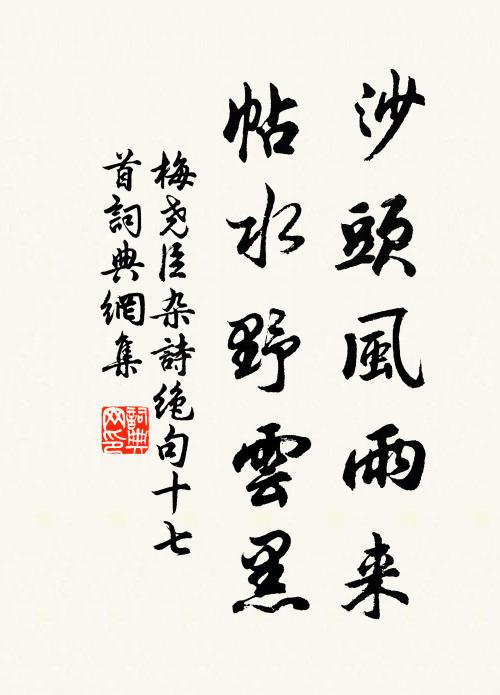 沙頭風雨来
帖水野雲黑
梅尧臣杂詩绝句十七
首詞典網集
詞典网印